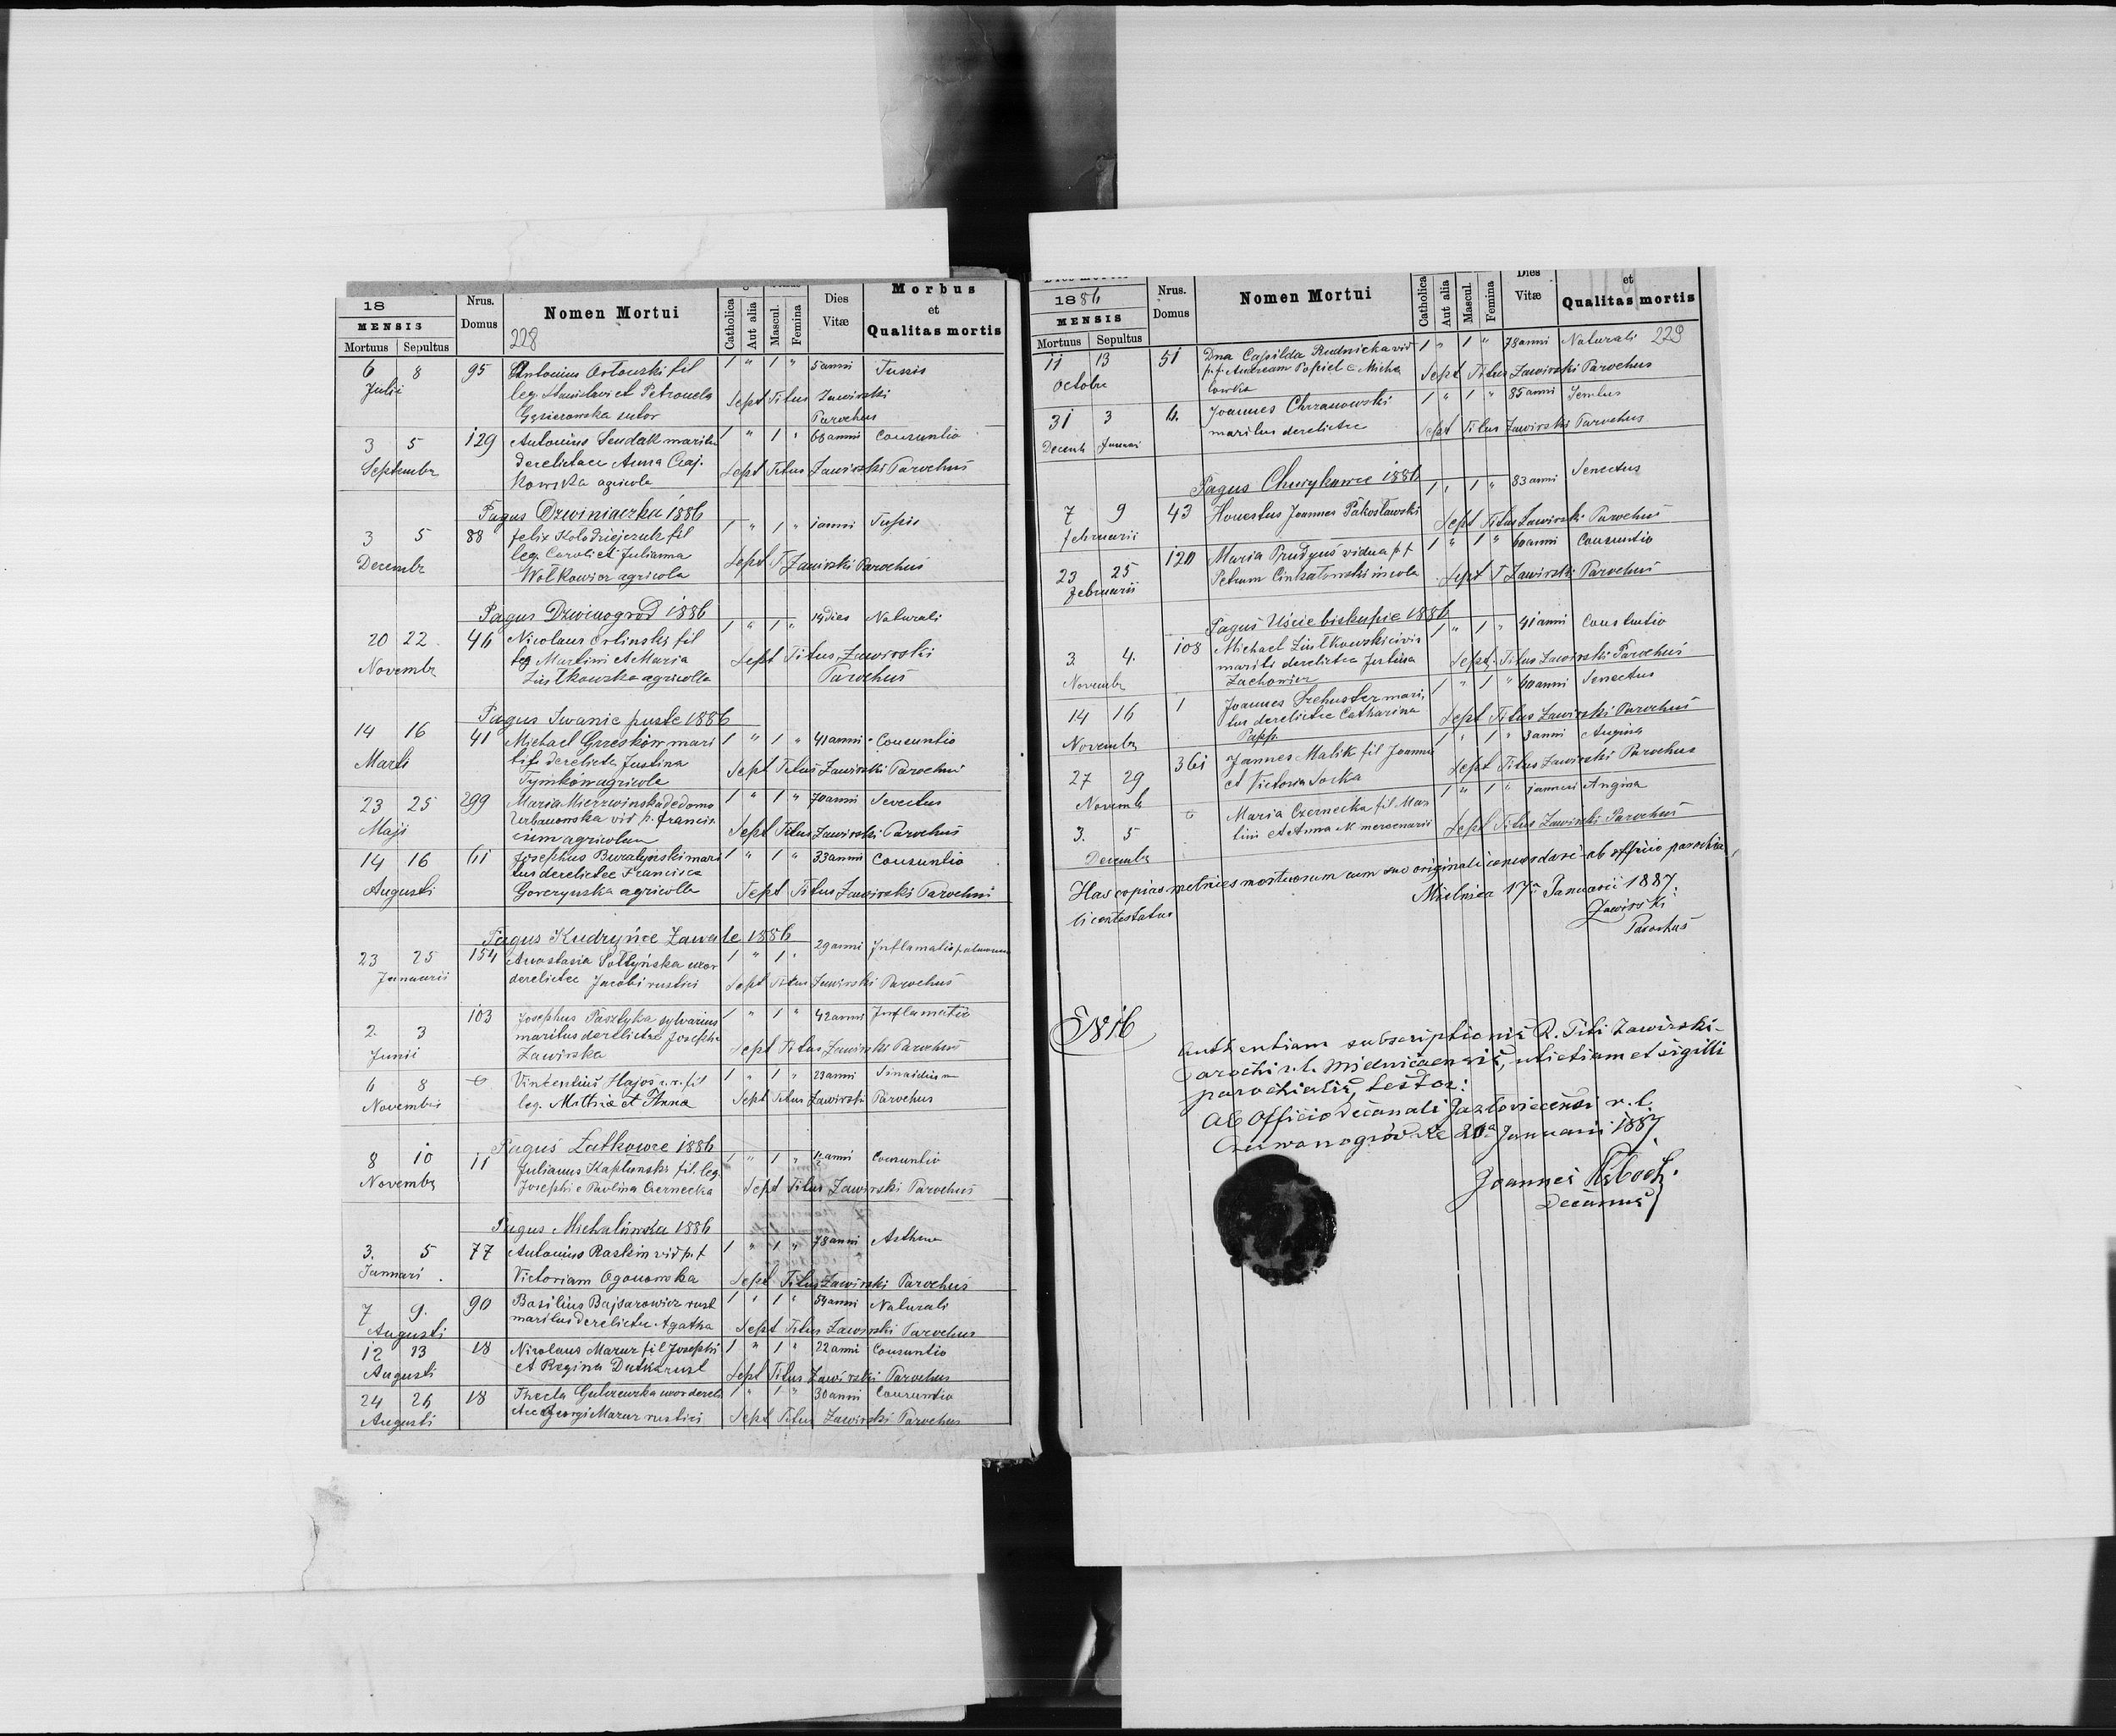 18
MENSIS
Mortuus Sepultus
Nrus. Domus
Nomen Mortui
228
Catholica
Aut alia
Mascul.
Femina
Dies Vitæ
Morbus
et
Qualitas mortis
6 8 95 Antonius Orłowski fil 1 " 1 " 5 anni Tussis
Julii leg. Stanislai et Petronela Sept Titus Zawirski
Gąsiorowska sutor Parochus
3 5 129 Antonius Sendak maritus 1 " 1 " 68 anni Consuntio
Septembr derelictae Anna Czaj- Sept Titus Zawirski Parochus
kowska agricola
Pagus Dzwiniaczka 1886
3 5 88 felix Kołodziejczuk fil 1 " 1 " 1 anni Tussis
Decembr leg. Caroli et Julianna Sept T Zawirski Parochus
Wołkowicz agricola
Pagus Dzwinogrod 1886
20 22 46 Nicolaus Orlinski fil 1 " 1 " 14 dies Naturali
Novembr leg Martini et Maria Sept Titus Zawirski
Ziułkowska agricolla Parochus
Pagus Iwanie puste 1886
14 16 41 Michael Grzesków mari 1 " 1 " 41 anni Consuntio
Marti derelicta Justina Sept Titus Zawirski Parochus
Tymków agricola
23 25 299 Maria Mierzwinska de domo 1 " 1 " 70 anni Senectus
Maji Urbanowska vid p. francis Sept Titus Zawirski Parochus
cum agricolam
14 16 61 Josephus Buratynski mari 1 " 1 " 33 anni Consuntio
tus derelictae Francisca
Augusti Gorczynska agricolla Sept Titus Zawirski Parochus
Pagus Kudryńce Zawale 1886
23 25 154 Anastasia Sołtyńska uxor 1 " 1 " 29 anni Inflamatio pulmonum
Januarii derelictae Jacobi rustici Sept Titus Zawirski Parochus
103 Josephus Pasztyka sylvarius 1 " 1 " 42 anni Inflamatio
2 3 maritus derelictae Josepha
Junii Zawirska Sept Titus Zawirski Parochus
6 8 Vincentius Hajos r. r. fil 1 " 1 " 23 anni
Novembris leg. Mathiæ et Anna Sept Titus Zawirski Parochus
Pagus Latkowce 1886
8 10 11 Julianus Kaplunski fil. leg. 1 " 1 " anni Consuntio
Novembr Josephi e Paulina Czernecka Sept Titus Zawirski Parochus
Pagus Michałówka 1886
3. 5 77 Antonius Raskin vid p. t 1 " 1 " 78 anni Asthma
Januari Victoriam Ogonowska Sept Titus Zawirski Parochus
7 9. 90 Basilius Bajsarowicz rust 1 " 1 " 54 anni Naturali
Augusti maritus derelictae Agatha Sept Titus Zawirski Parochus
12 13 18 Nicolaus Mazur fil Josephi 1 " 1 " 22 anni Consuntio
Augusti et Regina Dutka rust Sept Titus Zawirski Parochus
24 26 18 Thecla Gulczewska uxor dereli 1 " 1 " 30 anni Consuntio
Augusti ctae Georgi Mazur rustici Sept Titus Zawirski Parochus
1886
MENSIS
Mortuus Sepultus
Nrus. Domus
Nomen Mortui
Catholica
Aut alia
Mascul.
Femina
Dies Vitæ
et
Qualitas mortis
229
11 13 51 Dna Casilda Rudnicka vid 1 " 1 " 78 anni Naturali
Octobr p. t. Andream Popiel e Micha Sept Titus Zawirski Parochus
lowka
31 3 6. Joannes Chrzanowski 1 " 1 " 85 anni
Decemb Januari maritus derelictae Sept Titus Zawirski Parochus
Pagus Chudykowce 1886
7 9 43 Honestus Joannes Pakosławski 1 " 1 " 83 anni Senectus
februarii Sept Titus Zawirski Parochus
23 25 120 Maria Prudyus vidua p. t 1 " 1 " 60 anni Consuntio
februarii Petrum Cinkałowski incola Sept T Zawirski Parochus
Pagus Uście biskupie 1886
3. 4. 108 Michael Ziułkowski civis 1 " 1 " 41 anni Consuntio
Novembr mariti derelictae Justina Sept. Titus Zawirski Parochus
Zachowicz
14 16 1 Joannes Szehuster mari, 1 " 1 " 60 anni Senectus
tus derelictae Catharina Sept Titus Zawirski Parochus
Novembr Papp.
27 29 361 Joannes Malik fil Joannis 1 " 1 " 3 anni Angina
Novemb et Victoria Socka Sept Titus Zawirski Parochus
3. 5 Maria Czernecka fil. Mar 1 " 1 " 1 anni Angina
Decembr tini et Anna M mercenarii Sept Titus Zawirski Parochus
Has copias metrices mortuorum cum suo originali concordari ab officio parochia
li contestatur
Mielnica 17a Januarii 1887.
Zawirski
Parochus
N 16
Authentiam subscriptionis R. Titi Zawirski
Parochi r. l. Mielnicaensis, uti etiam et sigilli
parochialis, testor:
Ab Officio decanali Jazloviecensi r. l.
Czerwonogród die 20a Januarii 1887
Joannes
Decanus